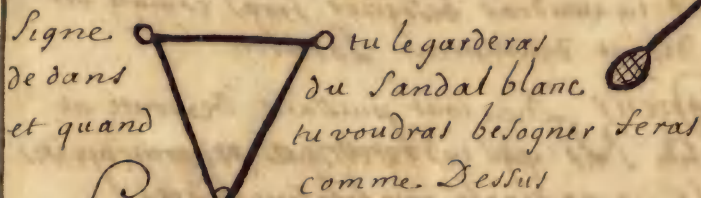 Signe tu le garderas
de dans du Sandal blanc
et quand tu voudras besogner feras
comme Dessus